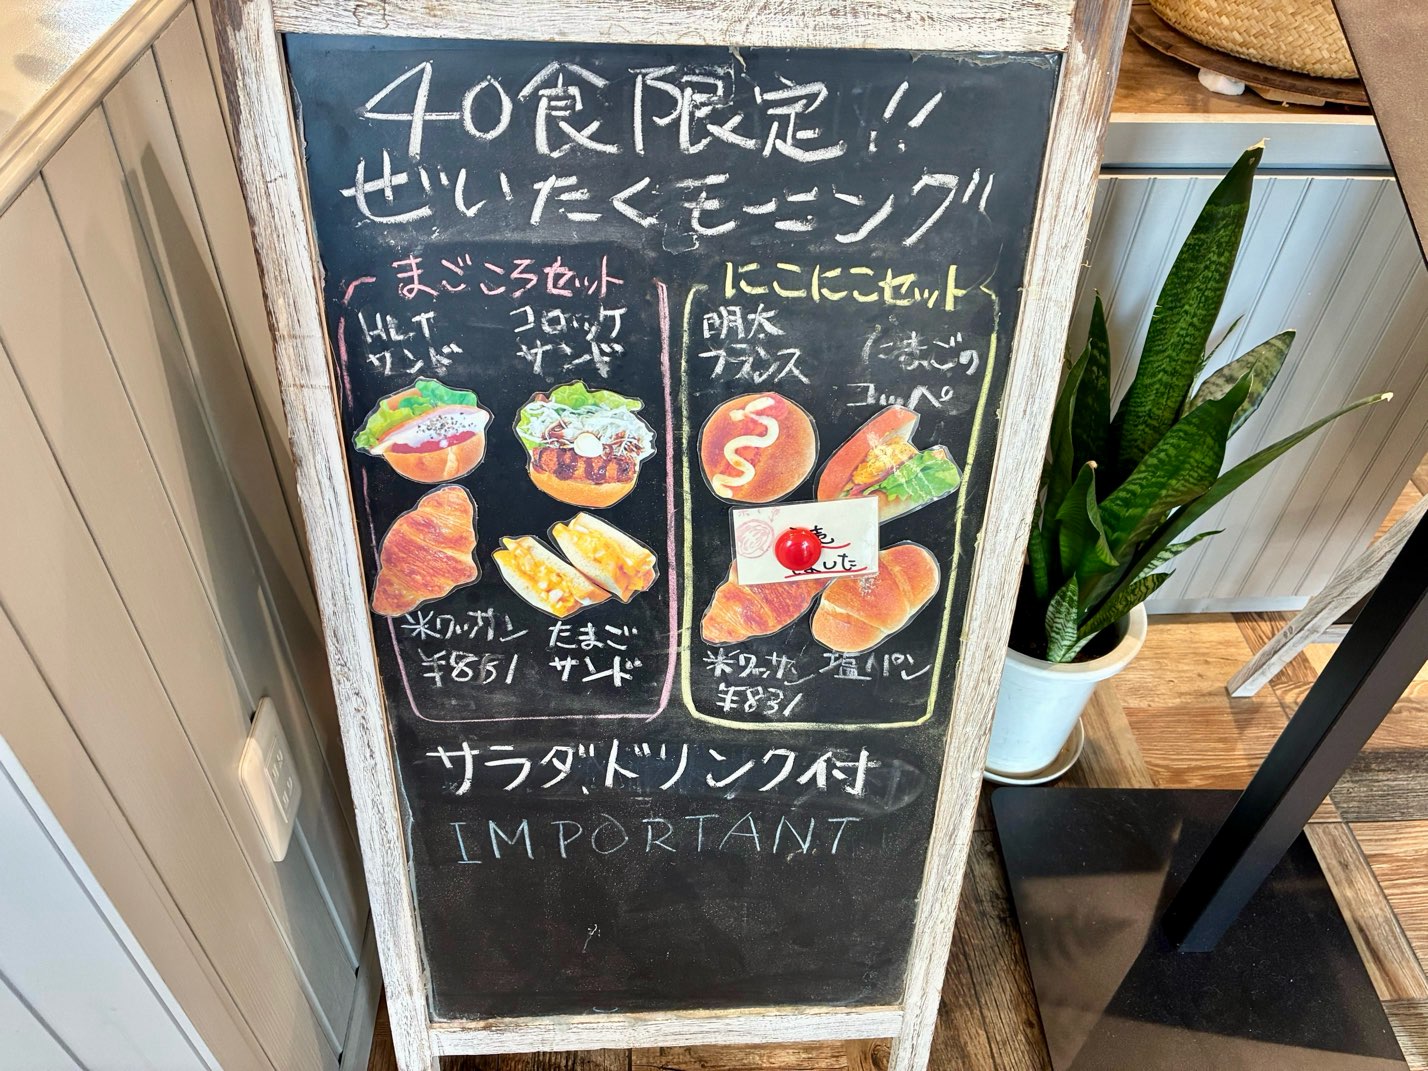 40食限定!!
ぜいたくモーニング
まごころセット
HLT
サンド
コロッケ
サンド
米ワッサン
¥851
たまご
サンド
にこにこセット
明太
フランス
たまごの
コッペ
ました
米ワッサン
¥831
塩パン
サラダ、ドリンク付
IMPORTANT